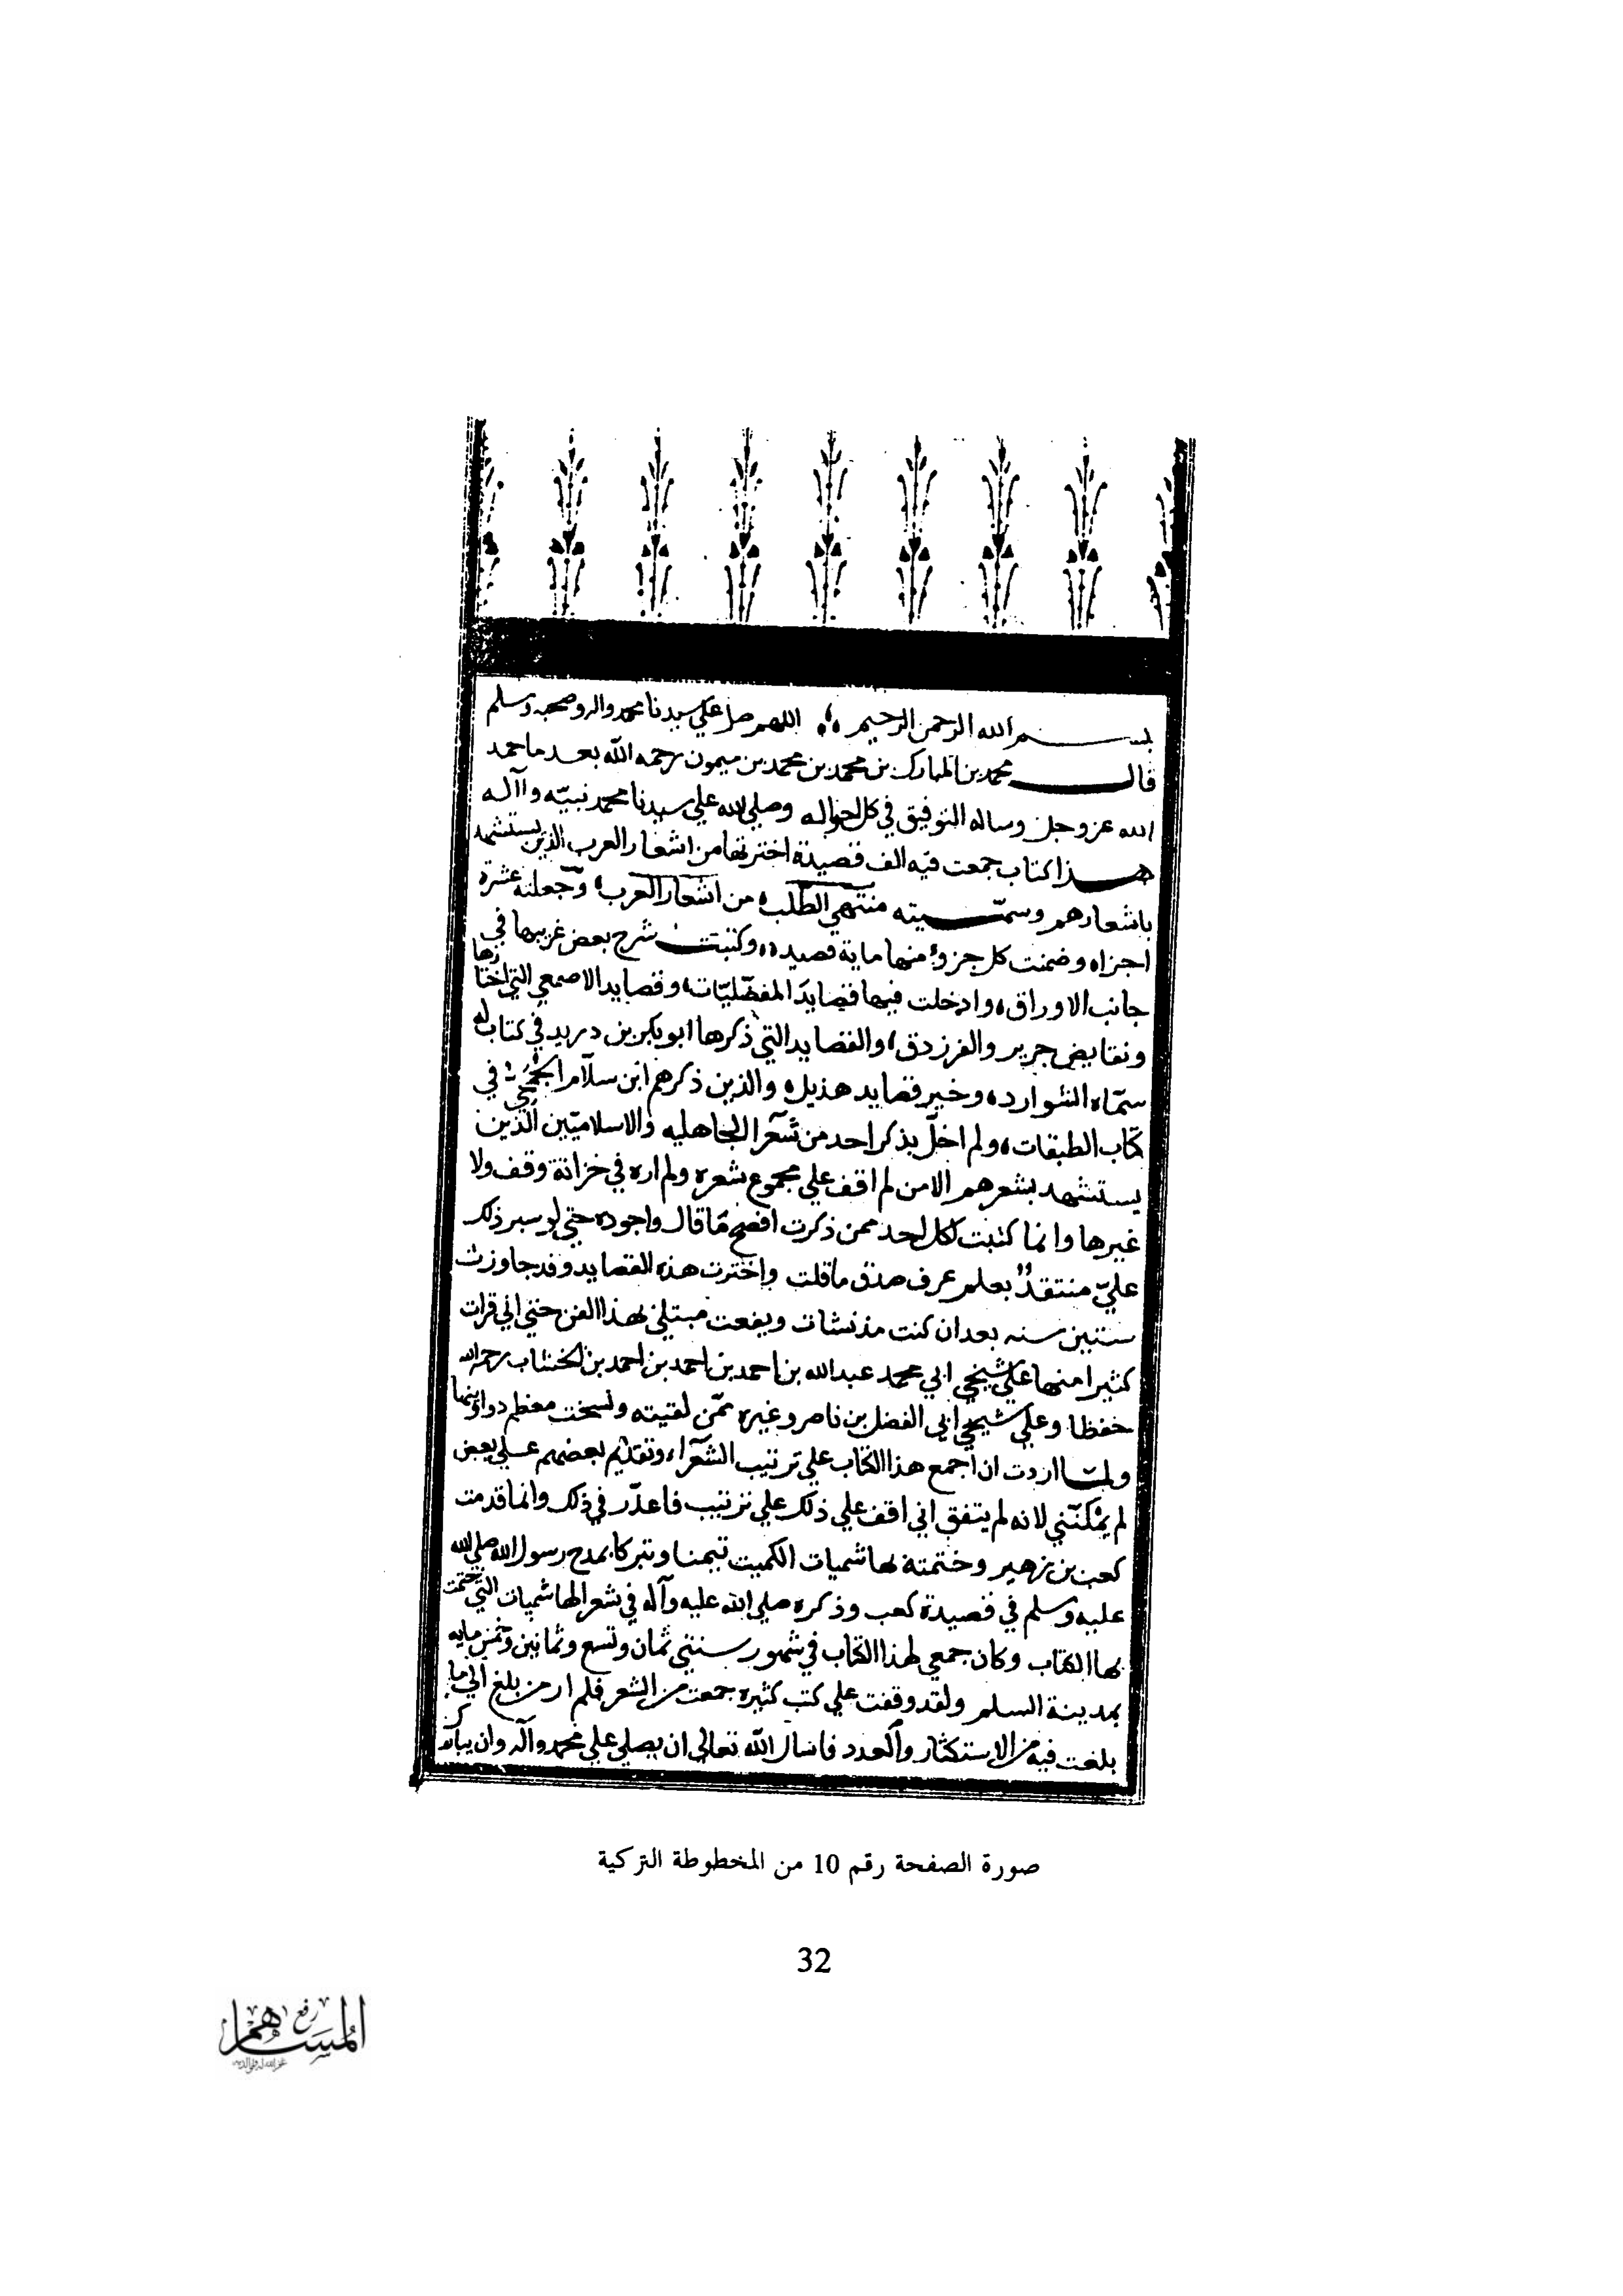 بسم الله الرحمن الرحيم اللهم صل علي سيدنا محمد واله وصحبه وسلم
قال محمد بن المبارك بن محمد بن محمد بن ميمون رحمه الله بعد ما حمد
الله عز وجل وساله التوفيق في كل احواله وصلي الله علي سيدنا محمد نبيّه وآله
هذا كتاب جمعت فيه الف قصيدة اخترتها من اشعار العرب الذين يستشهد
باشعارهم وسمّيته منتهي الطلب من اشعار العرب وجعلته عشرة
اجزاء وضمنت كل جزؤ منها ماية قصيده وكتبت شرح بعض غريبها في
جانب الاوراق، وادخلت فيها قصايد المفضّليّات، وقصايد الاصمعي التي اختارها
ونقايض جرير والفرزدق، والقصايد التي ذكرها ابو بكر بن دريد في كتاب له
سمّاه الشوارد، وخير قصايد هذيل، والذين ذكرهم ابن سلّام الجمحي في
كتاب الطبقات، ولم اخلّ بذكر احد من شعرآ الجاهليه والاسلاميّين الذين
يستشهد بشعرهم الا من لم اقف علي مجموع شعره ولم اره في خزانة وقف ولا
غيرها وانما كتبت لكل احد ممن ذكرت افصح ما قال واجوده حتي لو سبر ذلك
عليّ منتقدٌ بعلم عرف صدق ما قلت واخترت هذه القصايد وقد جاوزت
ستين سنه بعد ان كنت مذ نشات ويفعت مبتلي بهذا الفن حتي اني قرات
كثيرا منها علي شيخي ابي محمد عبد الله بن احمد بن احمد بن احمد بن الخشاب رحمه الله
حفظا وعلي شيخي ابي الفضل بن ناصر وغيره ممّن لقيته ونسخت معظم دواوينها
ولما اردت ان اجمع هذا الكتاب علي ترتيب الشعرآء وتقديم بعضهم علي بعض
لم يمكنّي لانه لم يتفق اني اقف علي ذلك علي ترتيب فاعذّر في ذلك وانما قدمت
كعب بن زهير وختمته بهاشميات الكميت تيمنا وتبركا بمدح رسول الله صلي الله
عليه وسلم في قصيدة كعب وذكره صلي الله عليه وآله في شعر الهاشميات التي ختمت
بها الكتاب وكان جمعي لهذا الكتاب في شهور سنتي ثمان وتسع وثمانين وخمس مايه
بمدينة السلم ولقد وقفت علي كتب كثيره جمعت من الشعر فلم ار من بلغ الي ما
بلغت فيه من الاستكثار والعدد فاسال الله تعالي ان يصلي علي محمد وآله وان يبارك
صورة الصفحة رقم 10 من المخطوطة التركية
32
رفع
المساهم
غفر الله له ولوالديه